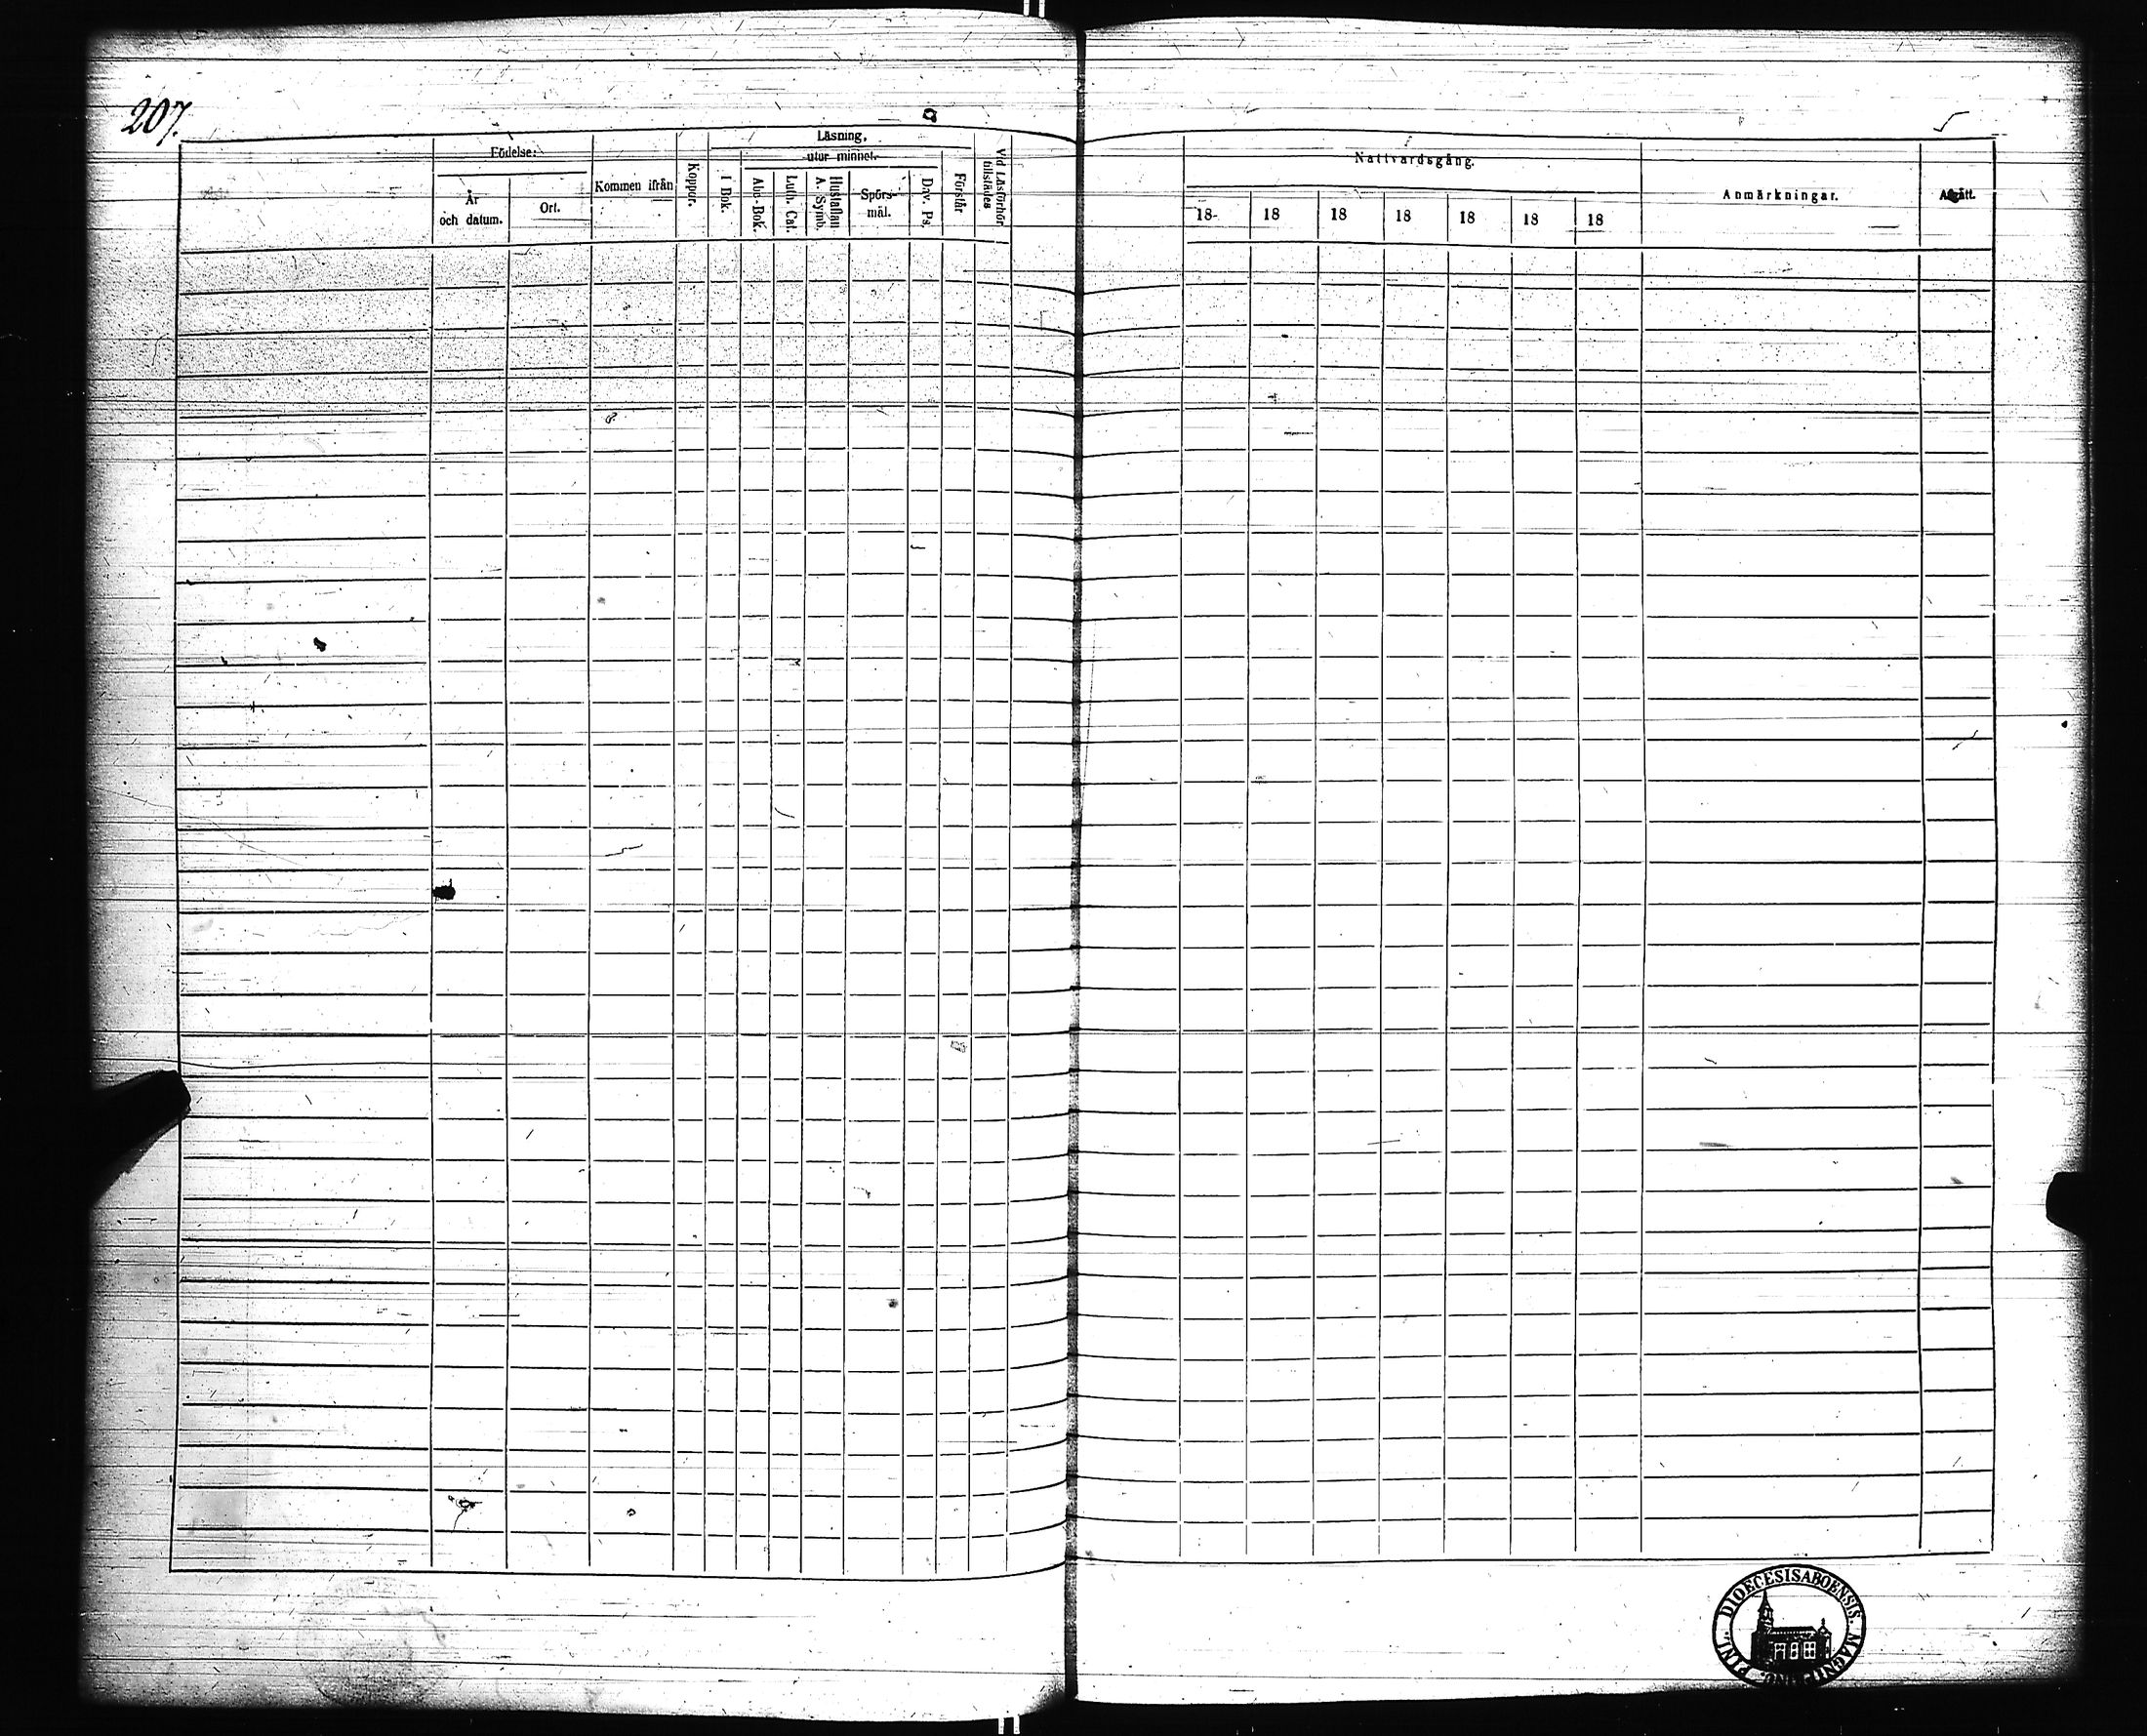 207.
Födelse:
År
och datum.
Ort.
Kommen ifrån
Koppor.
Läsning,
utur minnet.
I Bok.
Abc-Bok.
Luth. Cat.
Hustaflan
A. Symb.
Spörs-
mål.
Dav. Ps.
Förstår
Vid Läsförhör
tillstädes
Nattvardsgång.
18 18 18 18 18 18 18
Anmärkningar.
Afgått.
DIOECESIS ABOENSIS. MAGNI
FINL.